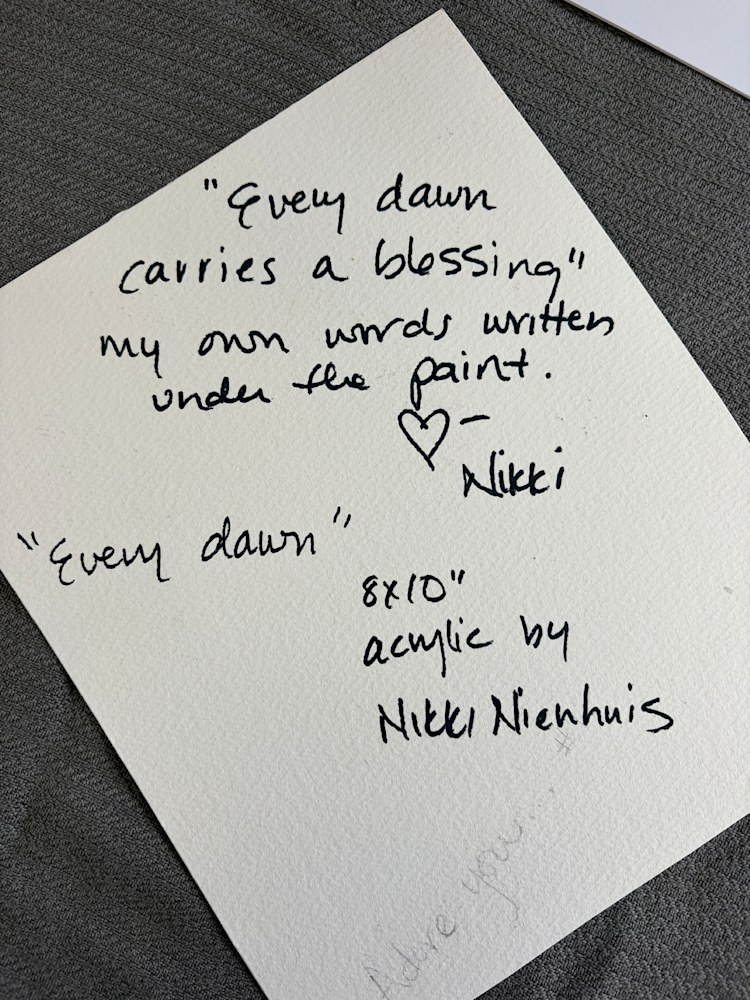 "Every dawn
carries a blessing"
my own words written
under the paint.
♡ –
Nikki
"Every dawn"
8x10"
acrylic by
Nikki Nienhuis
#
Adore you...